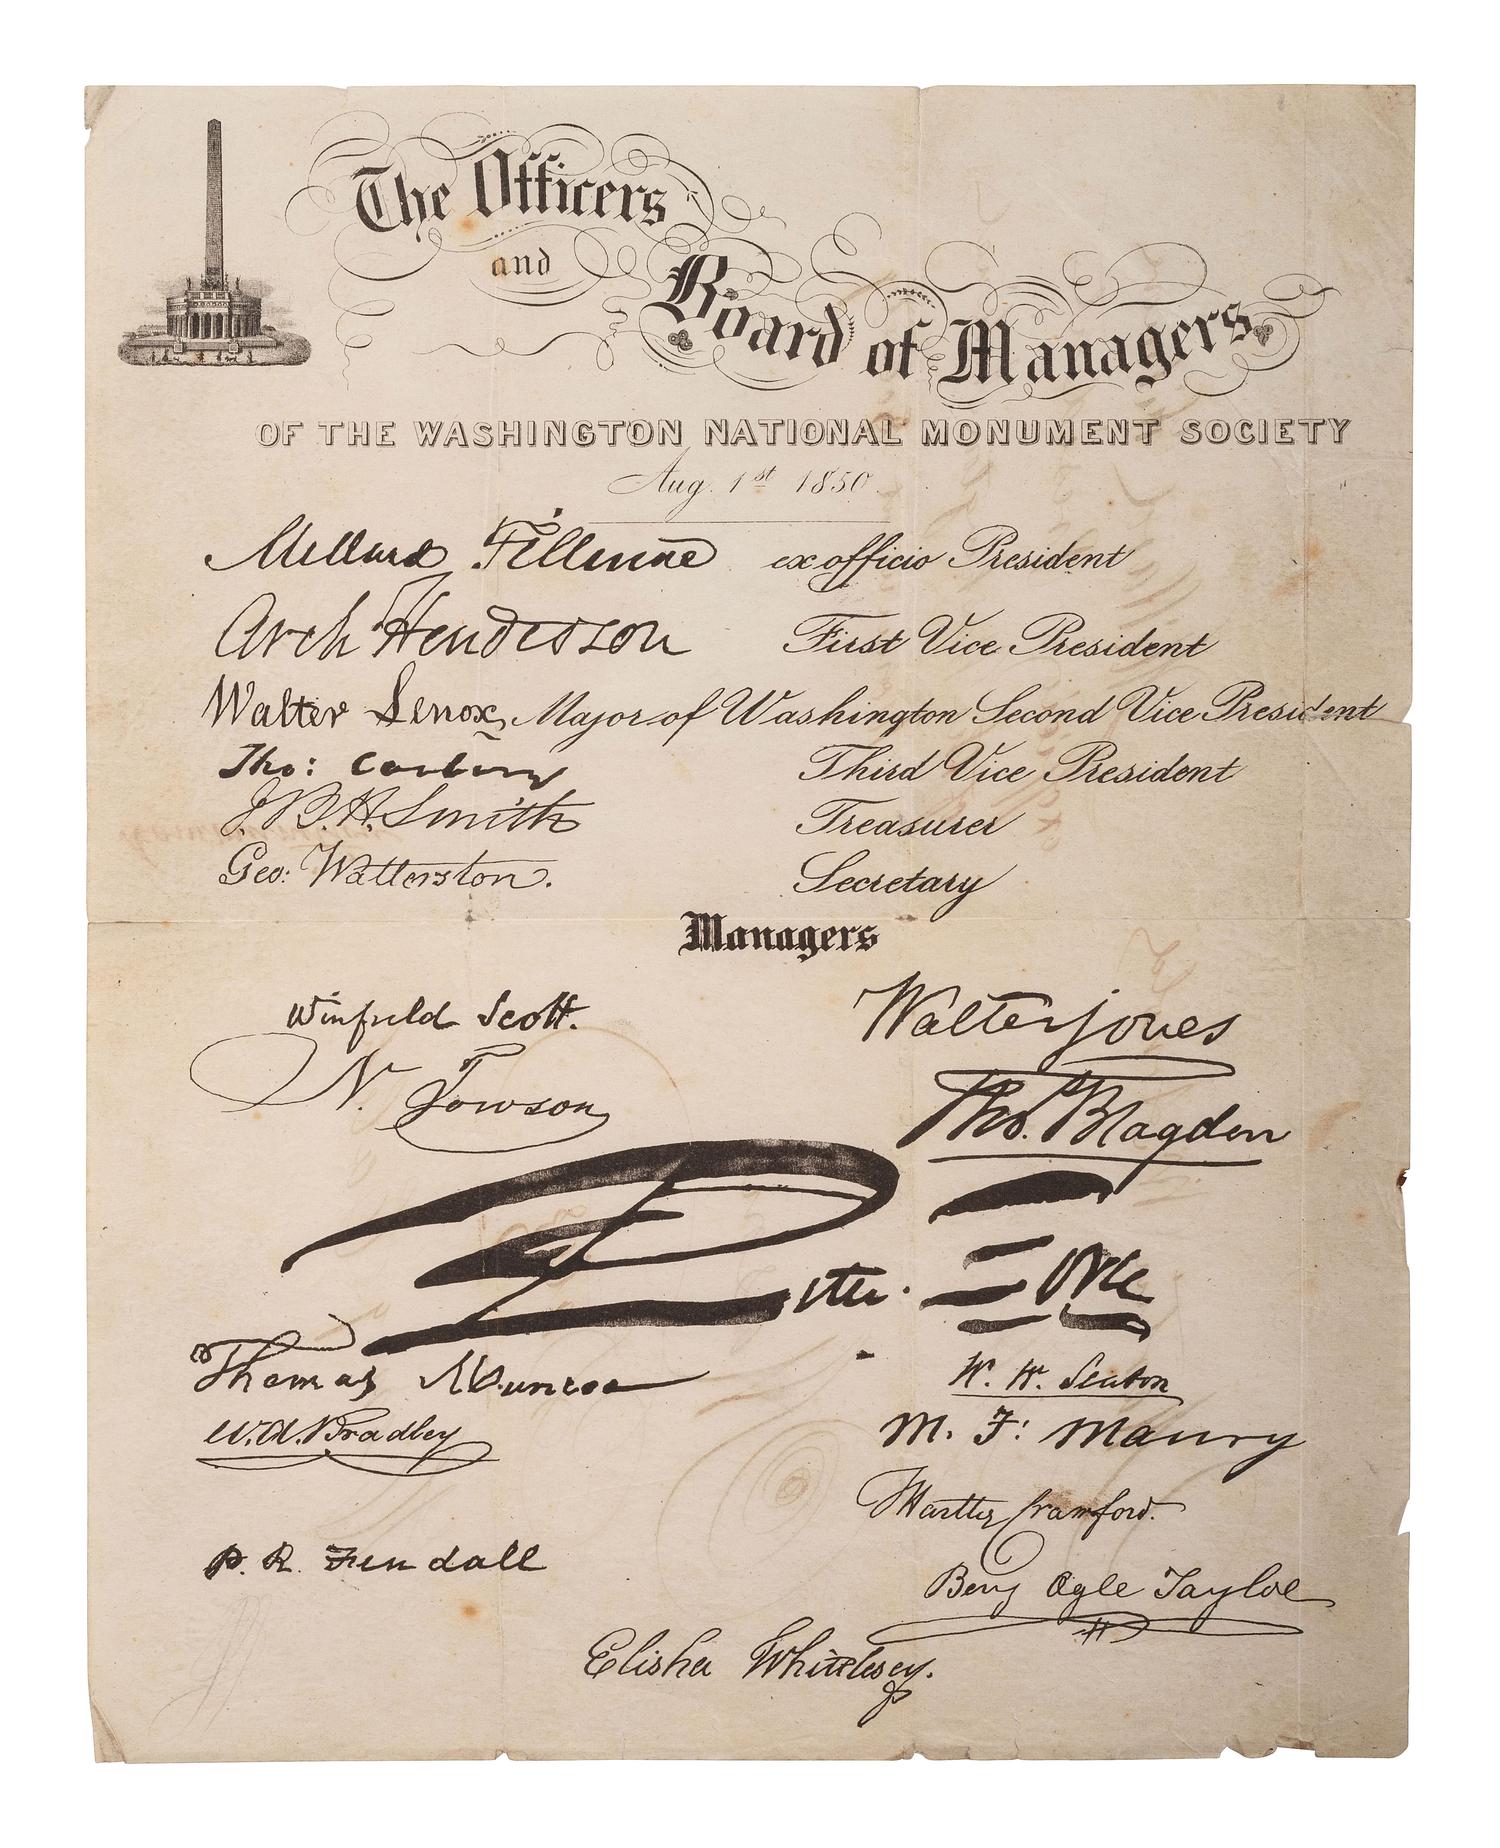 The Officers
and
Board of Managers
OF THE WASHINGTON NATIONAL MONUMENT SOCIETY
Aug. 1st 1850.
Millard Fillmore ex officio President
Arch Henderson First Vice President
Walter Lenox, Mayor of Washington Second Vice President
Tho: Carbery Third Vice President
J. B. H. Smith Treasurer
Geo: Watterston. Secretary
Managers
Winfield Scott.
Walter Jones
N. Towson
Tho. Blagden
Peter. Force
Thomas Munroe
W. W. Seaton
W. A. Bradley
M. F: Maury
Thomas Crawford.
P. R. Fendall
Benj Ogle Tayloe
Elisha Whittlesey.